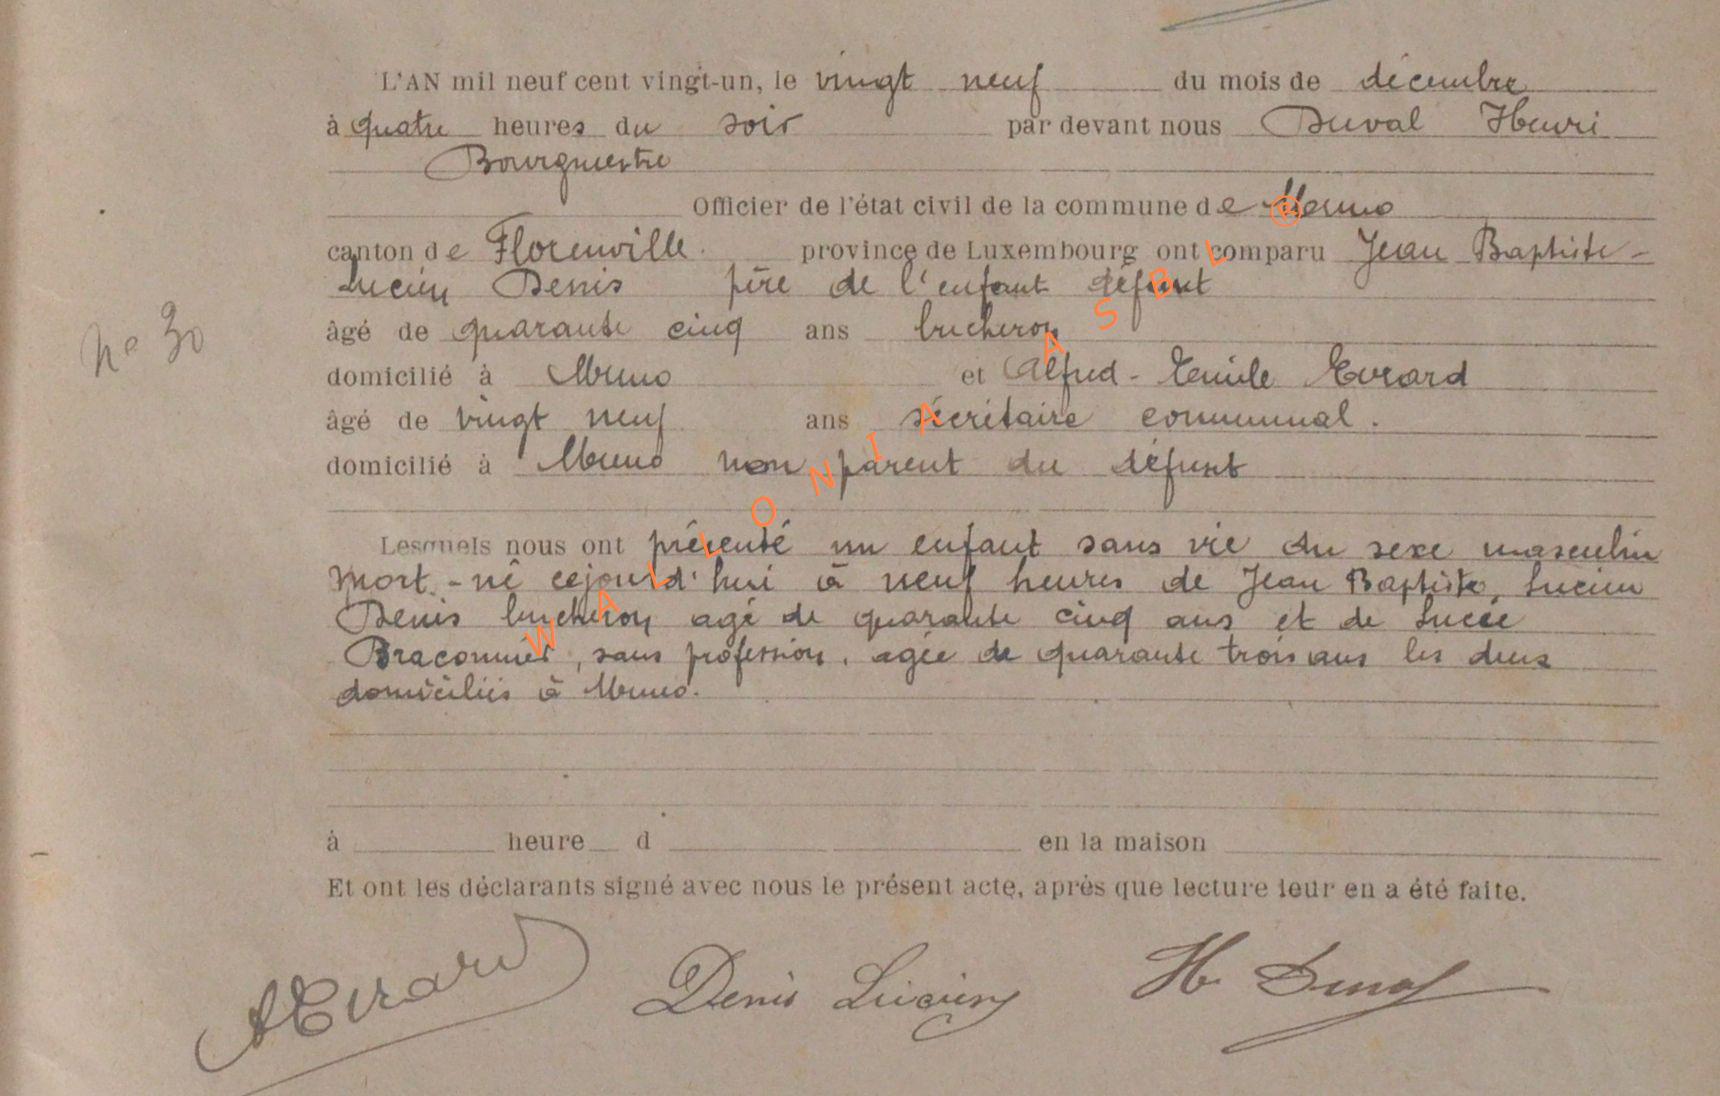 L'AN mil neuf cent vingt-un, le vingt neuf du mois de décembre
à quatre heures du soir par devant nous Duval Henri
Bourgmestre
Officier de l'état civil de la commune de Muno
canton de Florenville. province de Luxembourg ont comparu Jean Baptiste-
Lucien Denis père de l'enfant défunt
âgé de quarante cinq ans bucheron
N° 30
domicilié à Muno et Alfred-Emile Evrard
âgé de vingt neuf ans sécrétaire communal.
domicilié à Muno non parent du défunt
Lesquels nous ont présenté un enfant sans vie du sexe masculin
mort-né cejourd'hui à neuf heures de Jean Baptiste, Lucien
Denis bucheron agé de quarante cinq ans et de Lucie
Braconnier, sans profession, agée de quarante trois ans les deux
domiciliés à Muno.
à heure d en la maison
Et ont les déclarants signé avec nous le présent acte, après que lecture leur en a été faite.
AEvrard Denis Lucien H. Duval
WALLONIA ASBL ®